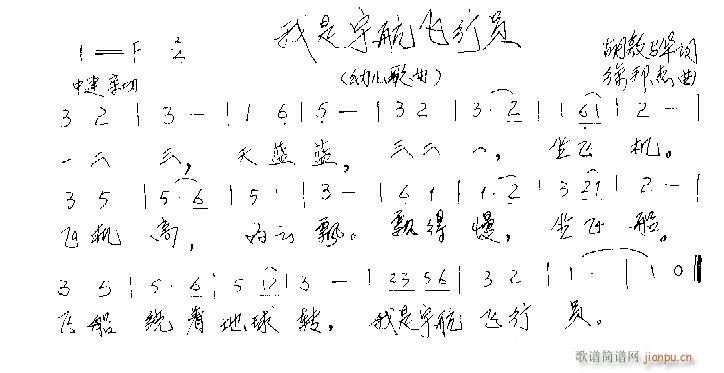 我是宇航飞行员
1=F 2/4
(幼儿歌曲)
胡敦华词
徐邦杰曲
中速 亲切
3 2 | 3 - | 1 6 | 5 - | 3 2 | 3· 2 | 1 61 | 2 - |
一二 三, 天蓝蓝, 三二 一, 坐飞 机。
3 5 | 5· 6 | 5 · | 3 - | 6 1 | 1· 2 | 3 21 | 2 - |
飞机 高, 白云 飘。飘得 慢, 坐飞 船。
3 5 | 5· 6 | 5 12 | 3 - | 23 56 | 3 2 | 1 · | 1 0 ‖
飞船 绕着 地球 转, 我是宇航 飞行 员。
歌谱简谱网
jianpu.cn